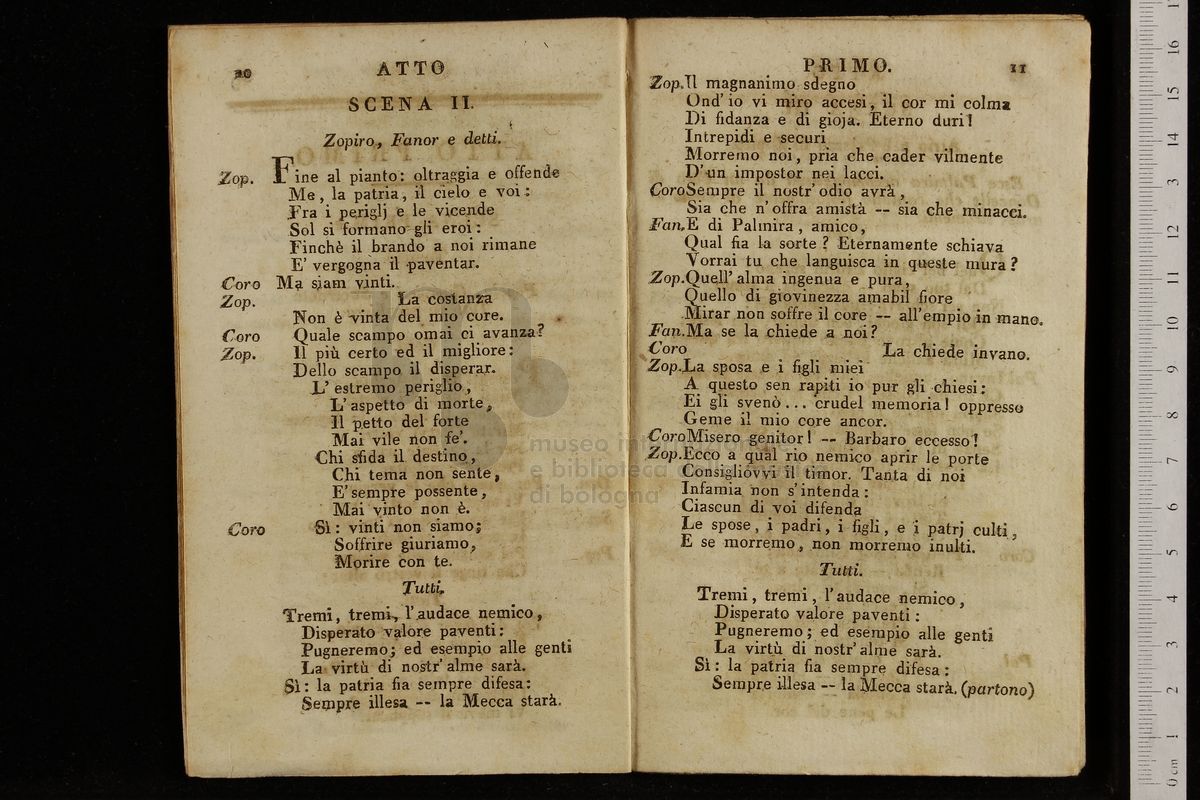 10
ATTO
SCENA II.
Zopiro, Fanor e detti.
Zop. Fine al pianto: oltraggia e offende
Me, la patria, il cielo e voi:
Fra i periglj e le vicende
Sol si formano gli eroi:
Finchè il brando a noi rimane
E' vergogna il paventar.
Coro Ma siam vinti.
Zop. La costanza
Non è vinta del mio core.
Coro Quale scampo omai ci avanza?
Zop. Il più certo ed il migliore:
Dello scampo il disperar.
L'estremo periglio,
L'aspetto di morte,
Il petto del forte
Mai vile non fe'.
Chi sfida il destino,
Chi tema non sente,
E' sempre possente,
Mai vinto non è.
Coro Sì: vinti non siamo;
Soffrire giuriamo,
Morire con te.
Tutti.
Tremi, tremi, l'audace nemico,
Disperato valore paventi:
Pugneremo; ed esempio alle genti
La virtù di nostr'alme sarà.
Sì: la patria fia sempre difesa:
Sempre illesa -- la Mecca starà.
PRIMO.
11
Zop. Il magnanimo sdegno
Ond'io vi miro accesi, il cor mi colma
Di fidanza e di gioja. Eterno duri!
Intrepidi e securi
Morremo noi, pria che cader vilmente
D'un impostor nei lacci.
Coro Sempre il nostr'odio avrà,
Sia che n'offra amistà -- sia che minacci.
Fan. E di Palmira, amico,
Qual fia la sorte? Eternamente schiava
Vorrai tu che languisca in queste mura?
Zop. Quell'alma ingenua e pura,
Quello di giovinezza amabil fiore
Mirar non soffre il core -- all'empio in mano.
Fan. Ma se la chiede a noi?
Coro La chiede invano.
Zop. La sposa e i figli miei
A questo sen rapiti io pur gli chiesi:
Ei gli svenò... crudel memoria! oppresso
Geme il mio core ancor.
Coro Misero genitor! -- Barbaro eccesso!
Zop. Ecco a qual rio nemico aprir le porte
Consigliovvi il timor. Tanta di noi
Infamia non s'intenda:
Ciascun di voi difenda
Le spose, i padri, i figli, e i patrj culti,
E se morremo, non morremo inulti.
Tutti.
Tremi, tremi, l'audace nemico,
Disperato valore paventi:
Pugneremo; ed esempio alle genti
La virtù di nostr'alme sarà.
Sì: la patria fia sempre difesa:
Sempre illesa -- la Mecca starà. (partono)
museo
e biblioteca
di bologna
0 cm 1 2 3 4 5 6 7 8 9 10 11 12 13 14 15 16 17